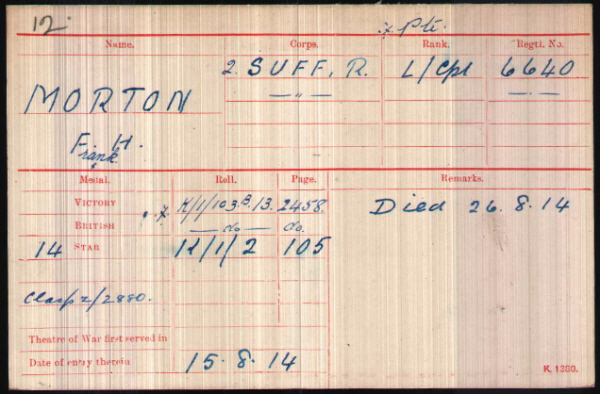 12.
x Pte.
Name. Corps. Rank. Regtl. No.
MORTON 2. SUFF. R. L/Cpl 6640
— " — — " —
Frank H.
Medal. Roll. Page. Remarks.
VICTORY x K/1/103.B.13. 2458. Died 26.8.14
BRITISH — do — do.
14 STAR K/1/2 105
Clasp z/2880.
Theatre of War first served in
Date of entry therein 15.8.14
K. 1380.